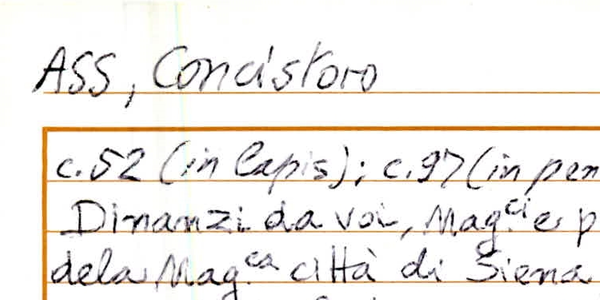 ASS, Concistoro
c. 52 (in lapis); c. 97 (in pen
Dinanzi da voi, Mag.ci e p
dela Mag.ca città di Siena